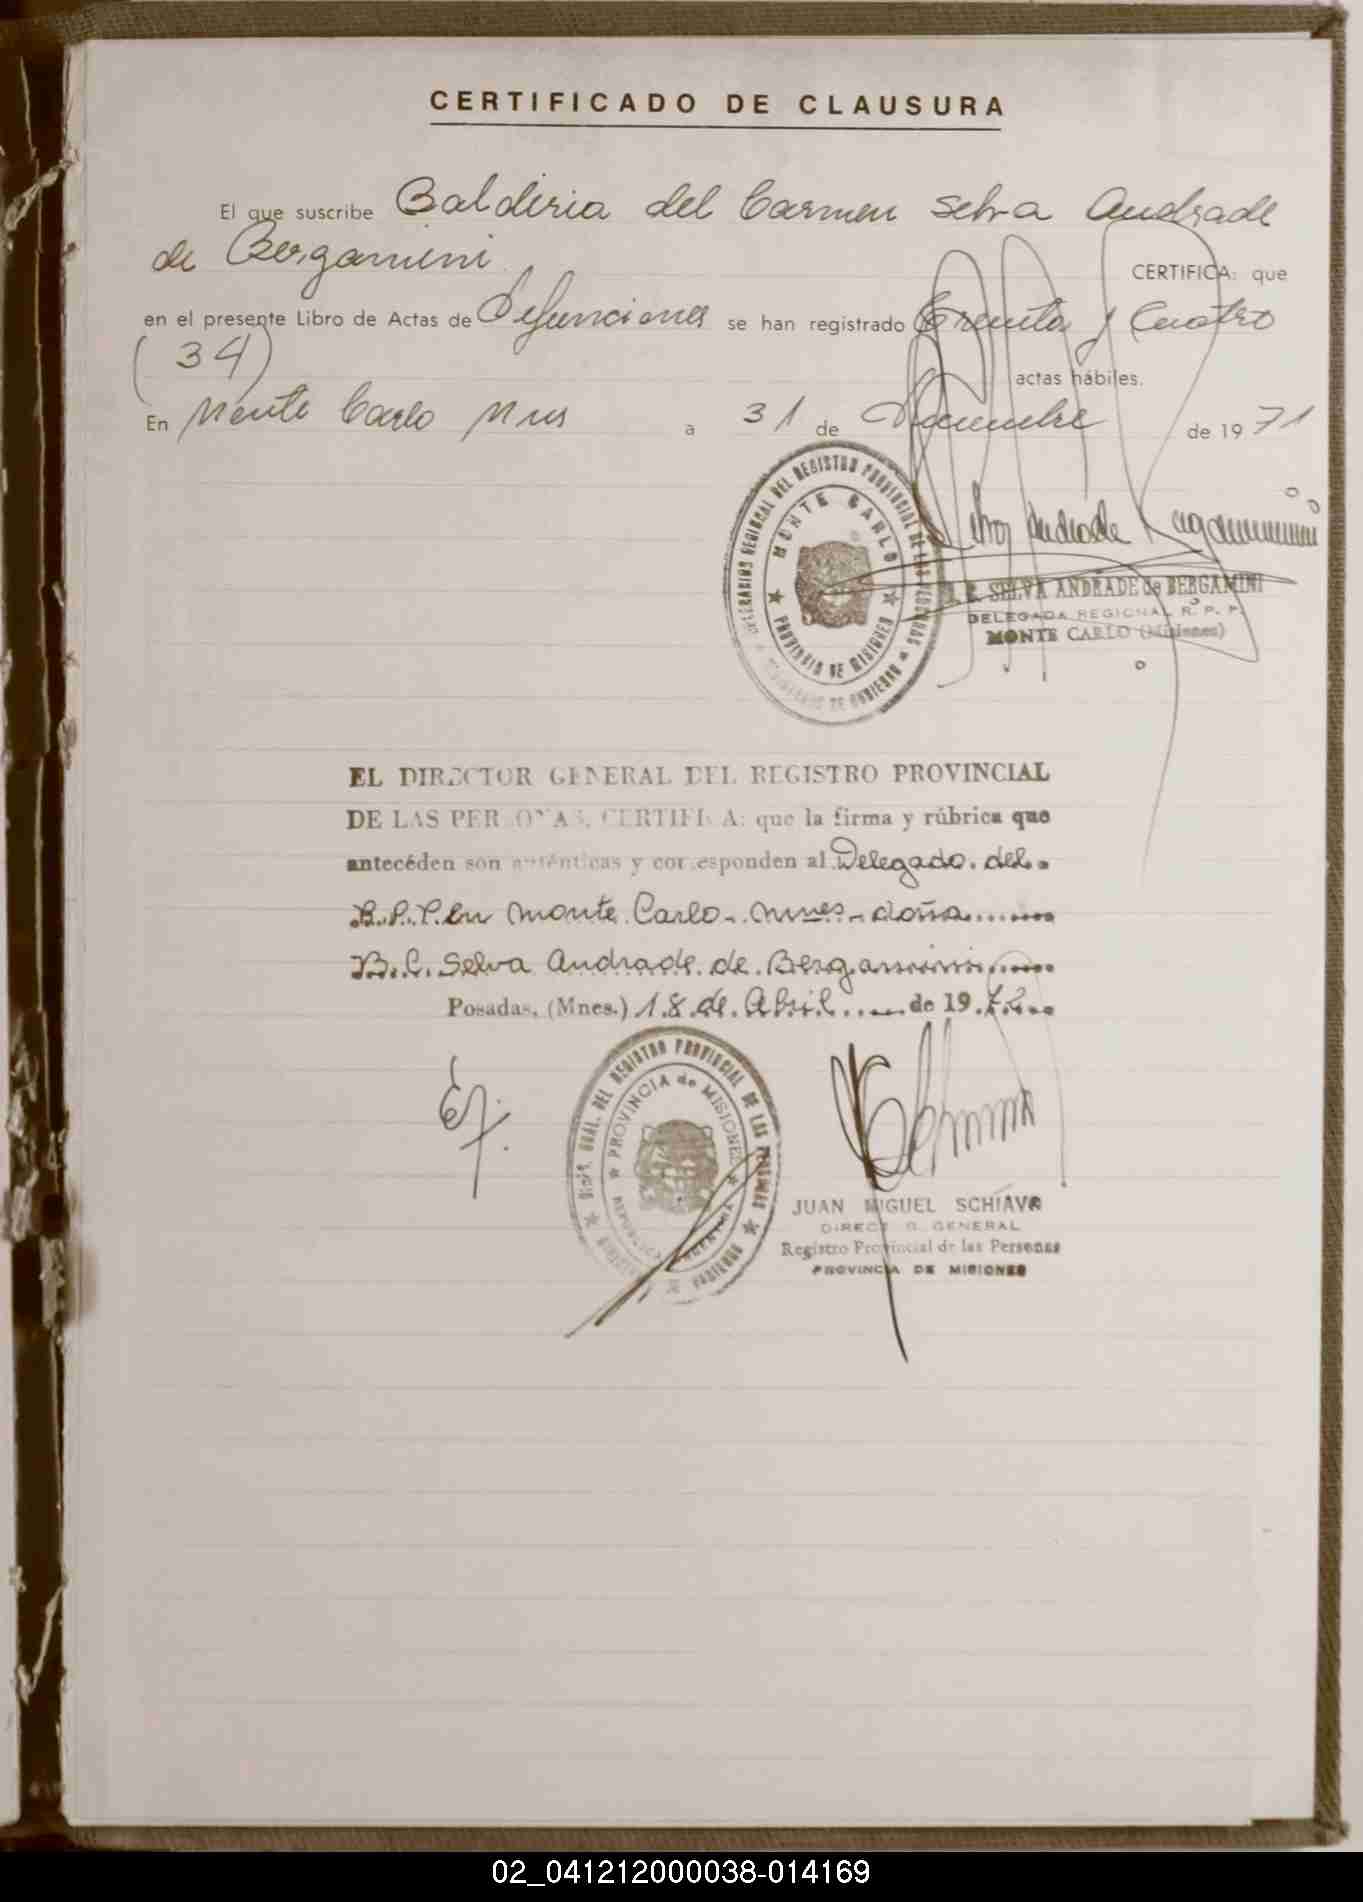 CERTIFICADO DE CLAUSURA
El que suscribe Baldiria del Carmen Selva Andrade
de Bergamini
CERTIFICA: que
en el presente Libro de Actas de Defunciones se han registrado Treinta y Cuatro
(34)
actas hábiles.
En Monte Carlo Mnes a 31 de Diciembre de 1971
SECRETARIOS REGIONAL DEL REGISTRO PROVINCIAL DE LAS PERSONAS
MONTE CARLO
PROVINCIA DE MISIONES
DE GOBIERNO
Selva Andrade Bergamini
SELVA ANDRADE de BERGAMINI
DELEGADA REGIONAL R. P. P.
MONTE CARLO (Misiones)
EL DIRECTOR GENERAL DEL REGISTRO PROVINCIAL
DE LAS PERSONAS, CERTIFICA: que la firma y rúbrica que
antecéden son auténticas y corresponden al Delegado. del
R.P.P. en Monte Carlo. Mnes. doña
B.C. Selva Andrade. de. Bergamini
Posadas, (Mnes.) 18 de Abril de 1972
DEL REGISTRO PROVINCIAL DE LAS PERSONAS
PROVINCIA de MISIONES
REPUBLICA ARGENTINA
GOBIERNO
JUAN MIGUEL SCHIAVO
DIRECTOR GENERAL
Registro Provincial de las Personas
PROVINCIA DE MISIONES
02_041212000038-014169